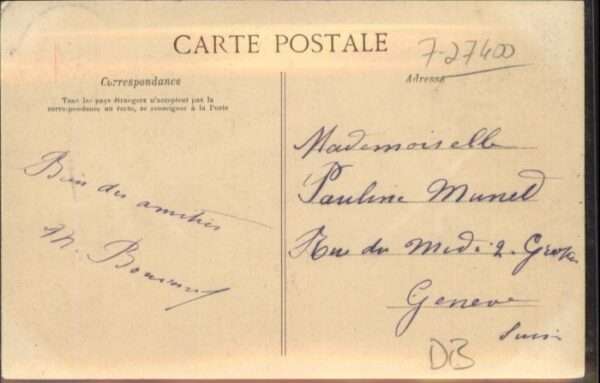 CARTE POSTALE
7-27400
Correspondance
Tous les pays étrangers n'acceptent pas la
correspondance au recto, se renseigner à la Poste
Adresse
Bien des amitiés
M.
Mademoiselle
Pauline Munet
Rue du Midi 2
Geneve
Suisse
DB